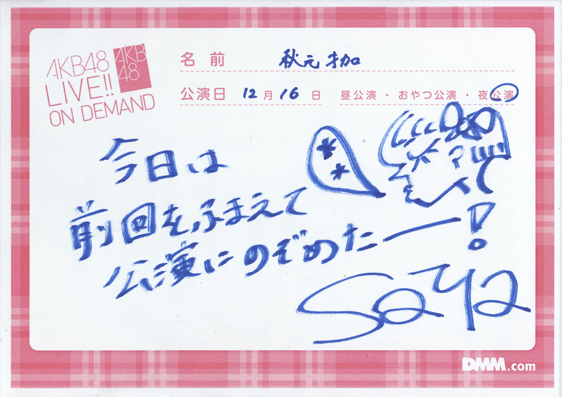 AKB48
LIVE!!
ON DEMAND
AKB
48
名前 秋元才加
公演日 12月16日 昼公演・おやつ公演・夜公演
今日は
前回をふまえて
公演にのぞめたー!
Saya
DMM.com